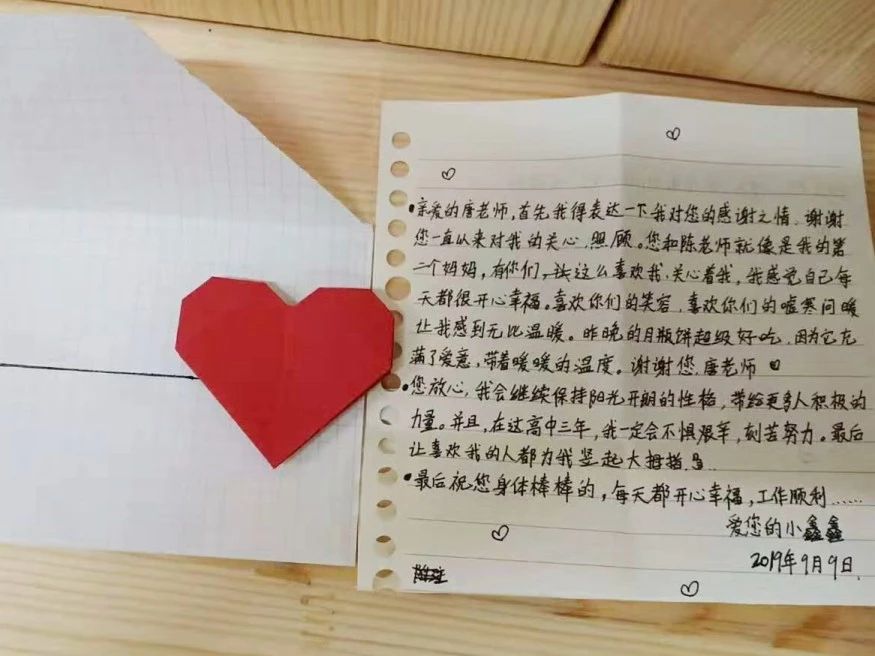 亲爱的唐老师,首先我得表达一下我对您的感谢之情,谢谢
您一直以来对我的关心、照顾。您和陈老师就像是我的第
二个妈妈,有你们这么喜欢我,关心着我,我感觉自己每
天都很开心幸福。喜欢你们的笑容,喜欢你们的嘘寒问暖
让我感到无比温暖。昨晚的月瓶饼超级好吃,因为它充
满了爱意,带着暖暖的温度。谢谢您,唐老师
您放心,我会继续保持阳光开朗的性格,带给更多人积极的
力量。并且,在这高中三年,我一定会不惧艰辛,刻苦努力。最后
让喜欢我的人都为我竖起大拇指
最后祝您身体棒棒的,每天都开心幸福,工作顺利......
爱您的小鑫鑫
2019年9月9日